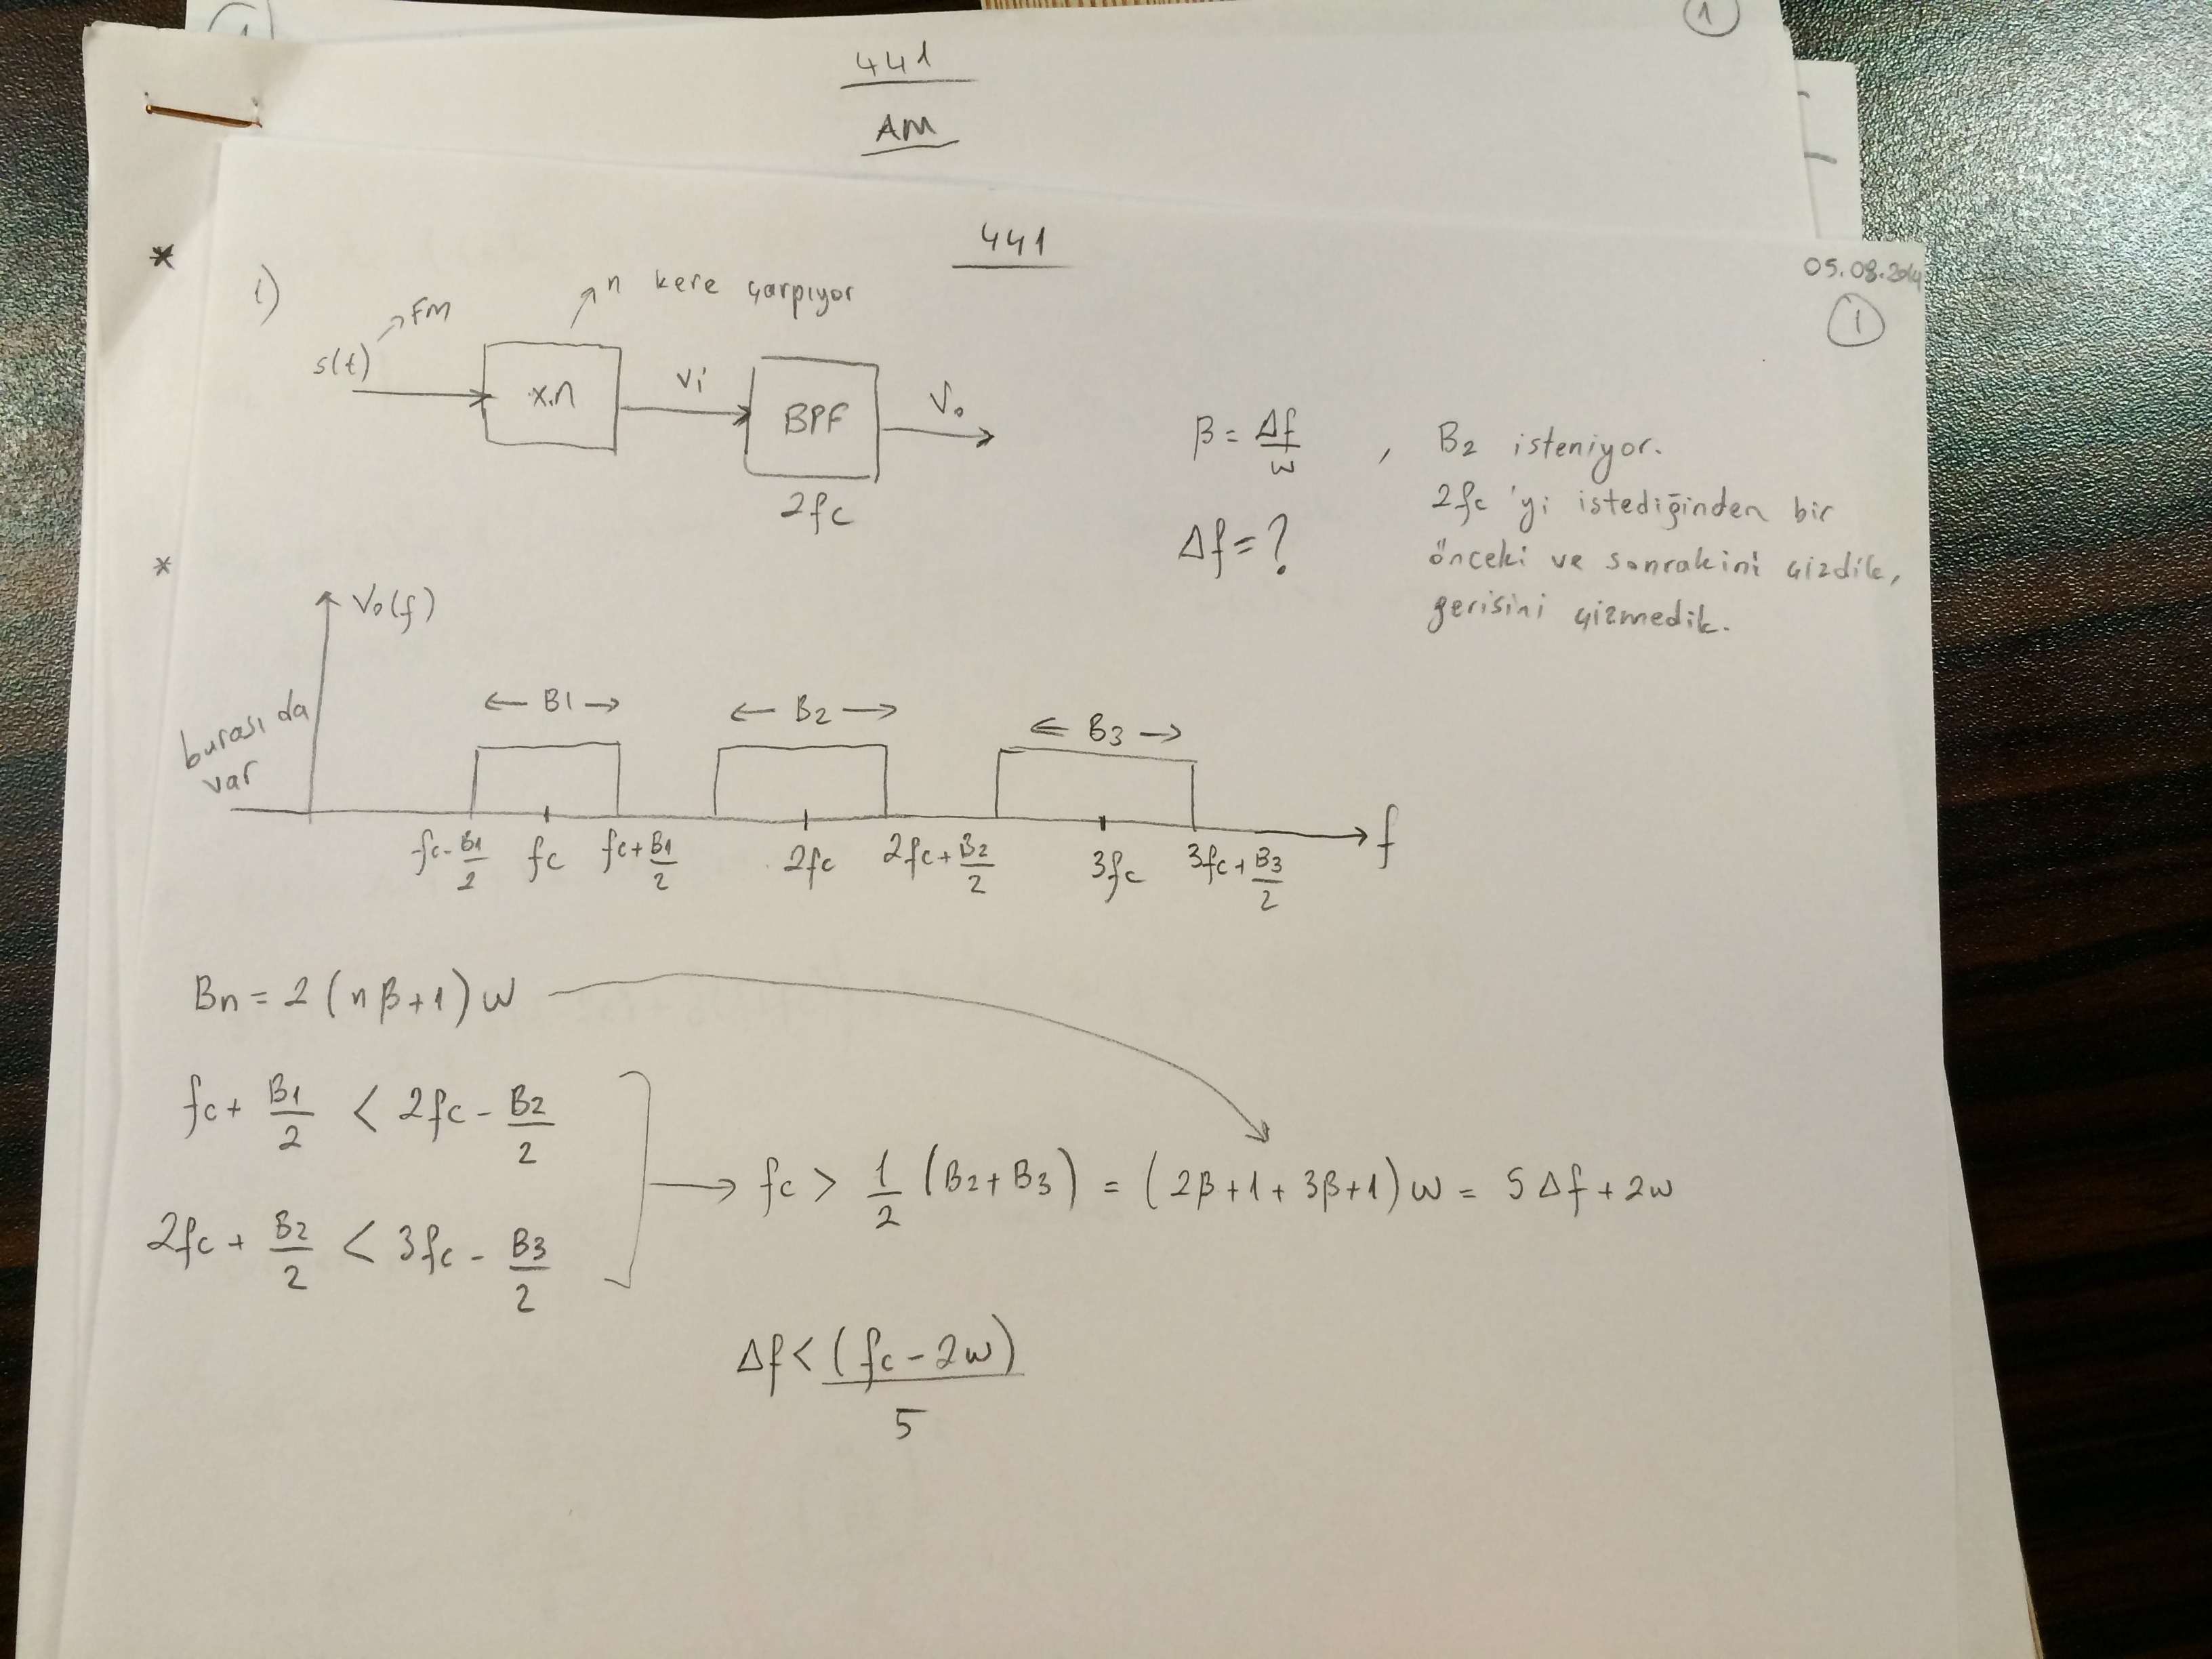 1
1
441
AM
441
05.08.2014
1
1)
n kere çarpıyor
FM
s(t)
x.n
Vi
BPF
Vo
2fc
β = Δf/w , B2 isteniyor.
Δf = ?
2fc 'yi istediğinden bir
önceki ve sonrakini çizdik,
gerisini çizmedik.
Vo(f)
burası da
var
← B1 →
← B2 →
← B3 →
fc - B1/2
fc
fc + B1/2
2fc
2fc + B2/2
3fc
3fc + B3/2
f
Bn = 2 (nβ+1) w
fc + B1/2 < 2fc - B2/2
2fc + B2/2 < 3fc - B3/2
→ fc > 1/2 (B2 + B3) = (2β+1+3β+1) w = 5Δf + 2w
Δf < (fc - 2w)/5